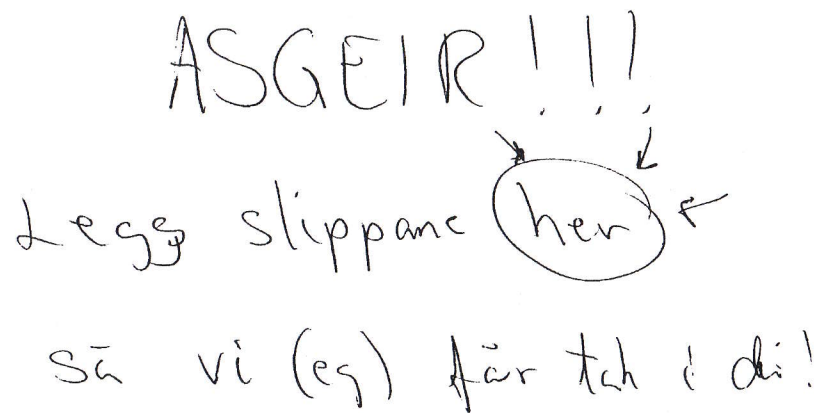 ASGEIR!!!
Legg slippane her
så vi (eg) får tak i di!